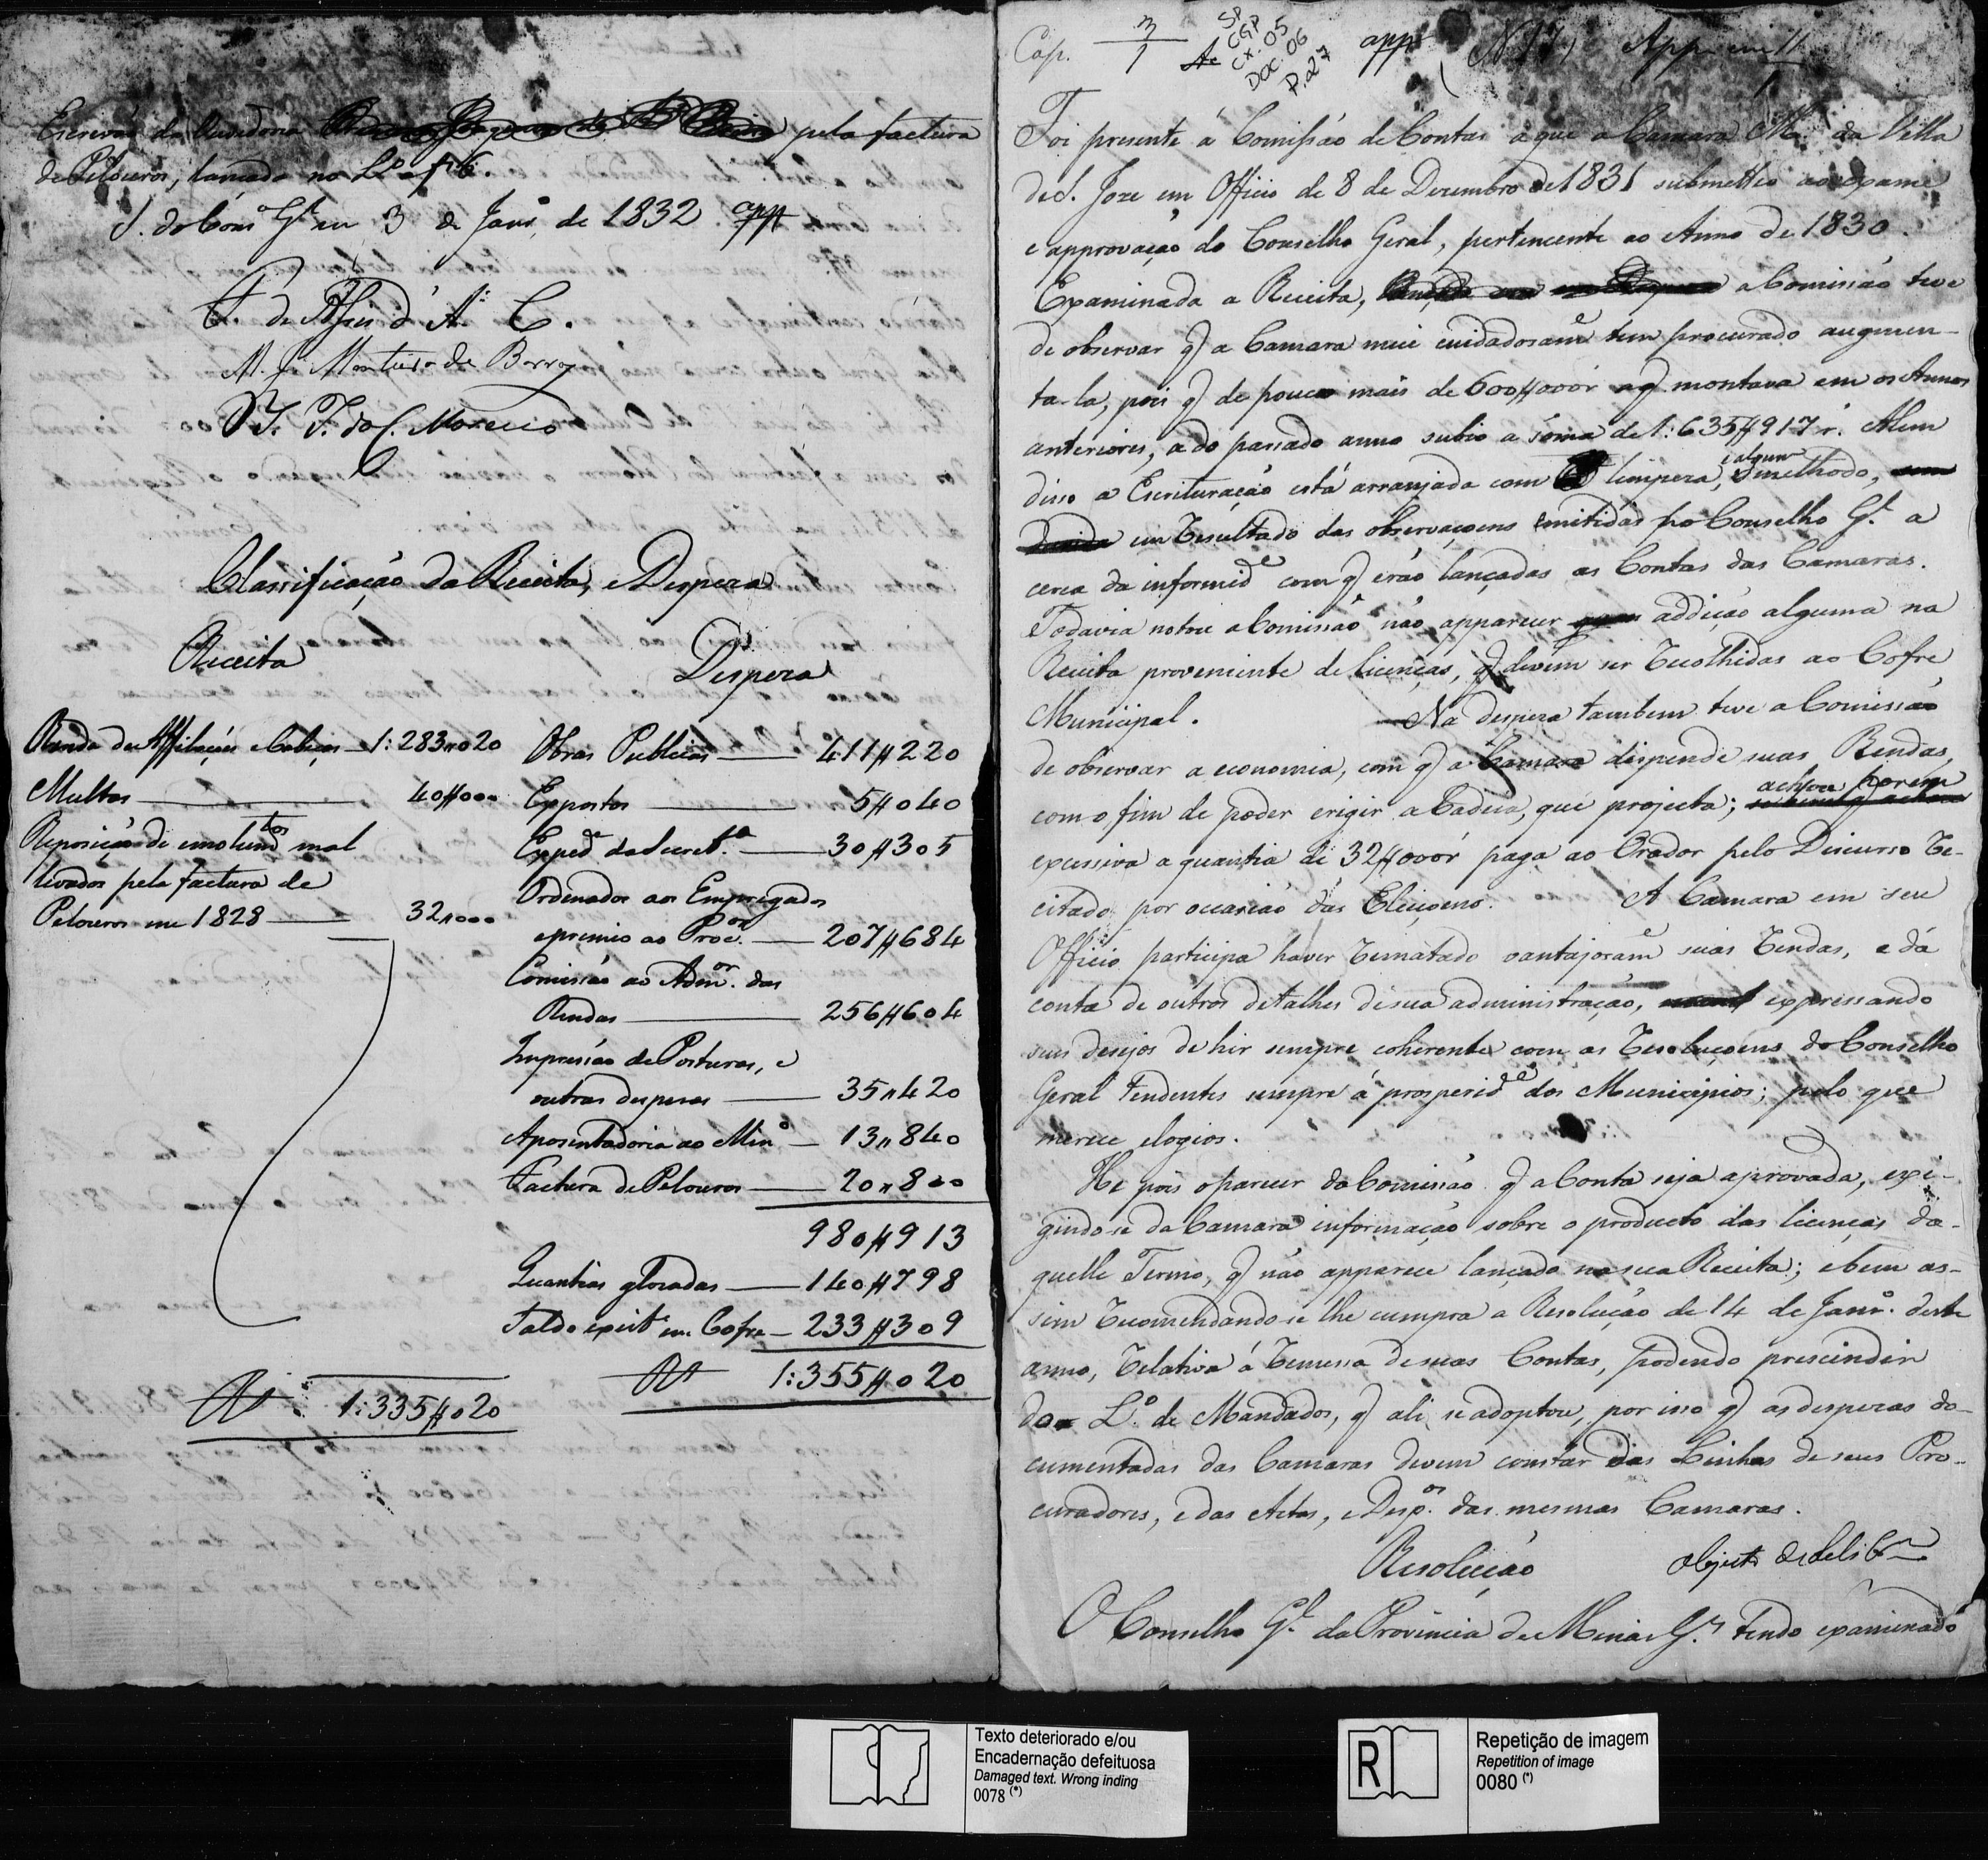 Escrivão da Ouvidoria pela factura
de Pilouros, lançada no L.º a f 6.
S. do Cons.º G.l em 3 de Janr.º de 1832
F. de Assis d' A. C.
M. J. Monteiro de Barros
J. J. do C. Moreira
Classificação da Receita, e Despeza
Receita
Renda de Affilações e Cabeças — 1:283"020
Multas — 40#000
Reposição de emolum.tos mal
levados pela factura de
Pelouros em 1828 — 32"000
1:335#020
Despeza
Obras Publicas — 411#220
Expostos — 5#040
Exped.e da Secret.a — 30#305
Ordenados aos Empregados
e premio ao Proc.or — 207#684
Comissão ao Adm.or das
Rendas — 256#604
Impressão de Posturas, e
outras despezas — 35"420
Aposentadoria ao Min.º — 13"840
Factura de Pelouros — 20"800
980#913
Quantias glozadas — 140#798
Saldo exist.e em Cofre — 233#309
1:355#020
Cap. 3 1
SP
CGP
CX. 05
DOC. 06
P. 27
app N 17, App. em 11
Foi presente á Comissão de Contas a que a Camara M.al da Villa
de S. Joze em Officio de 8 de Dezembro de 1831 submetteo ao exame
e approvação do Conselho Geral, pertencente ao Anno de 1830.
Examinada a Receita, a Comissão teve
de observar q a Camara mui cuidadosam.e tem procurado augmen-
ta-la, pois q de pouco mais de 600#000 r a q montava em os Annos
anteriores, a do passado anno subio a soma de 1:635#917 r. Alem
disso a Escrituração está arranjada com limpeza, e algum methodo,
em Resultado das observaçoens emitidas p.lo Conselho G.l a
cerca da informid.e com q erão lançadas as Contas das Camaras.
Todavia notou a Comissão não apparecer addição alguma na
Receita proveniente de licenças, q devem ser Recolhidas ao Cofre
Municipal. Na despeza tambem teve a Comissão
de observar a economia, com q a Camara dispende suas Rendas,
com o fim de poder erigir a Cadeia, que projecta; achou porem
excessiva a quantia de 32#000 r paga ao Orador pelo Discurso Re-
citado por occasião das Eleiçoens. A Camara em seu
Officio participa haver Rematado vantajosam.e suas Rendas, e dá
conta de outros detalhes de sua administração, expressando
seus desejos de hir sempre coherente com as Resoluçoens do Conselho
Geral tendentes sempre á prosperid.e dos Municipios; pelo que
merece elogios.
He pois o parecer da Comissão q a Conta seja aprovada, exi-
gindo-se da Camara informação sobre o producto das licenças da-
quelle Termo, q não apparece lançado na sua Receita; e bem as-
sim Recomendando-se lhe cumpra a Resolução de 14 de Janr.º deste
anno, Relativa á Remessa de suas Contas, podendo prescindir
do L.º de Mandados, q ali se adoptou, por isso q as despezas do-
cumentadas das Camaras devem constar das Linhas de seus Pro-
curadores, e das Actas, e Desp.os das mesmas Camaras.
Resolução objecto de delib.m
O Conselho G.l da Provincia de Minas G.s tendo examinado
Texto deteriorado e/ou
Encadernação defeituosa
Damaged text. Wrong inding
0078 (*)
R
Repetição de imagem
Repetition of image
0080 (*)